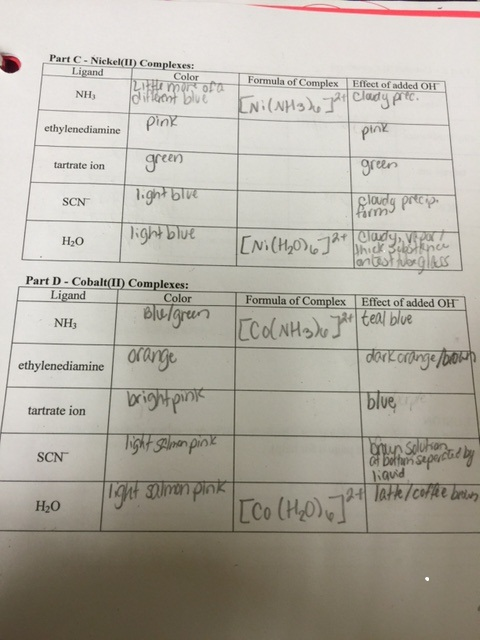 Part C - Nickel(II) Complexes:
Ligand Color Formula of Complex Effect of added OH⁻
NH₃ Little more of a different blue [Ni(NH3)6]²⁺ Cloudy prec.
ethylenediamine pink pink
tartrate ion green green
SCN⁻ light blue cloudy precip. forms
H₂O light blue [Ni(H₂O)6]²⁺ Cloudy, vapor/ thick substance on test tube glass
Part D - Cobalt(II) Complexes:
Ligand Color Formula of Complex Effect of added OH⁻
NH₃ Blue/green [Co(NH3)6]²⁺ teal blue
ethylenediamine orange dark orange/brown
tartrate ion bright pink blue
SCN⁻ light salmon pink brown solution at bottom separated by liquid
H₂O light salmon pink [Co(H₂O)6]²⁺ latte/coffee brown